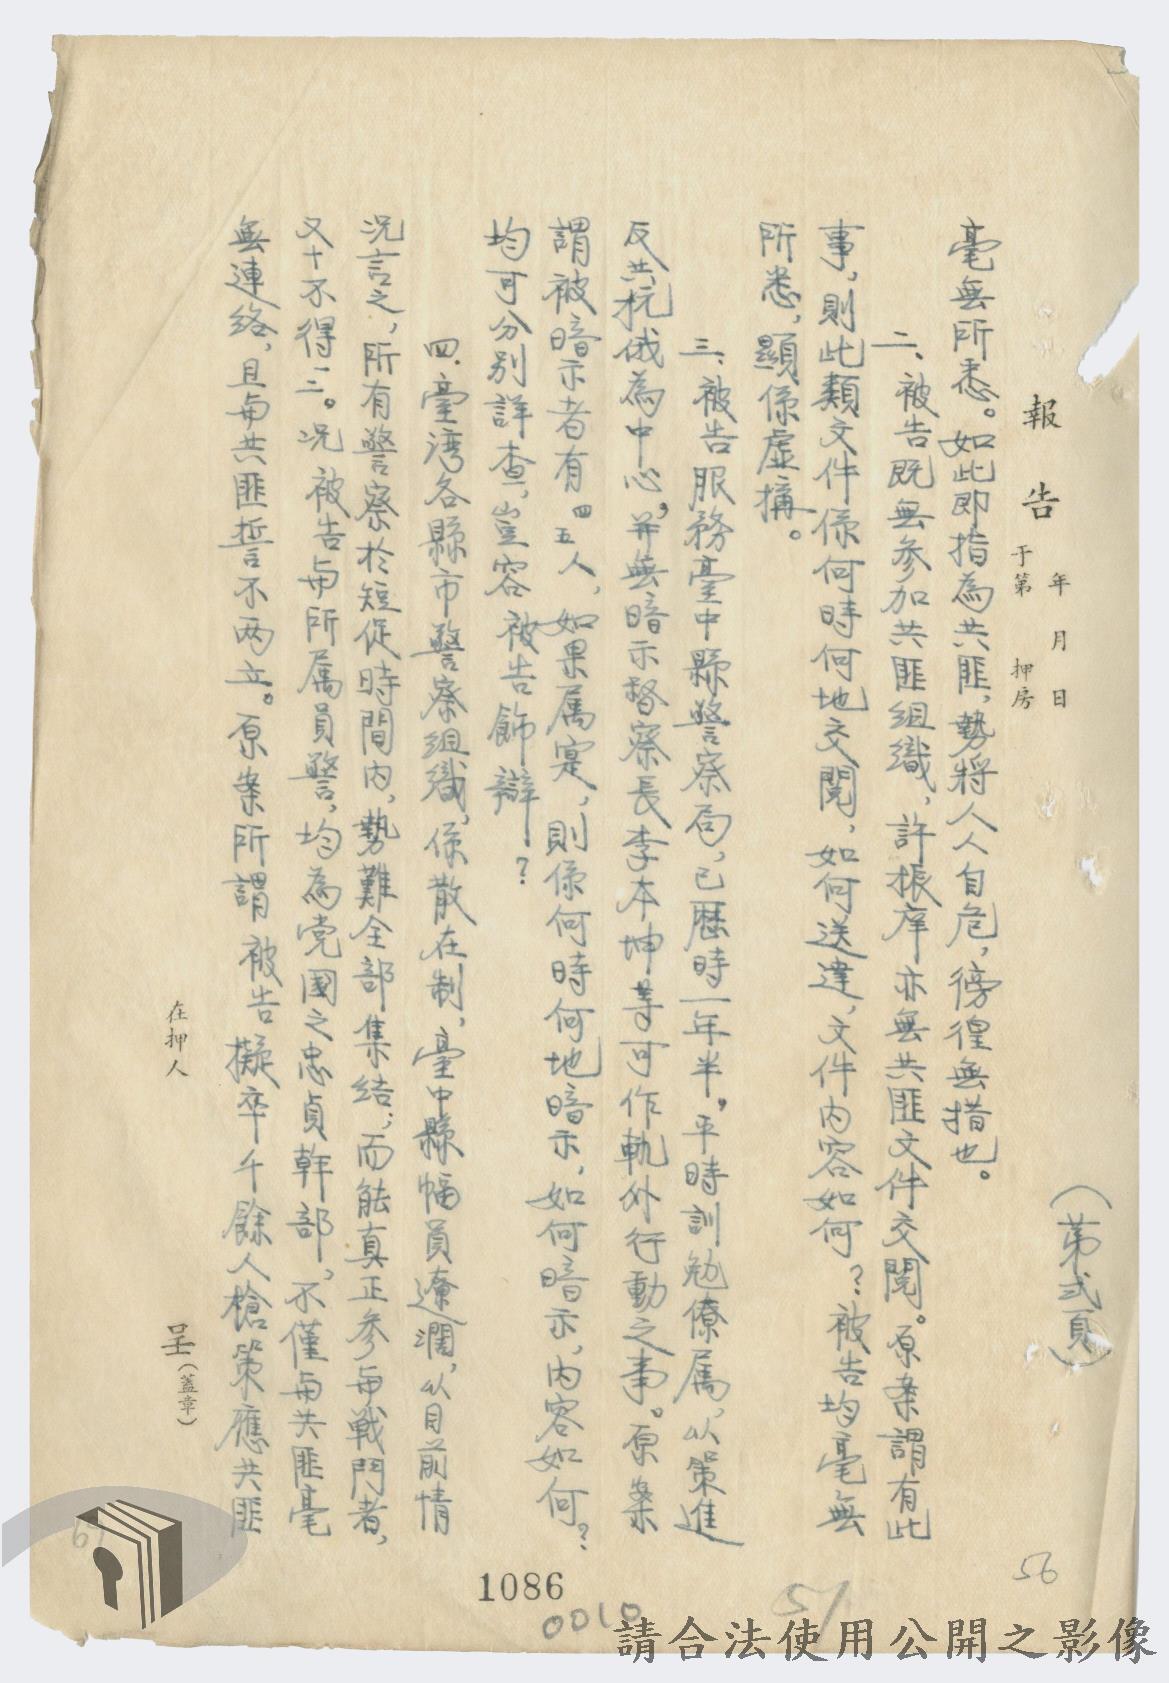 (第弍頁)
報告
年 月 日
于第 押房
毫無所悉。如此即指為共匪，勢將人人自危，徬徨無措也。
二、被告既無參加共匪組織，許振庠亦無共匪文件交閱。原案謂有此
事，則此類文件係何時何地交閱，如何送達，文件內容如何？被告均毫無
所悉，顯係虛搆。
三、被告服務臺中縣警察局，已歷時一年半。平時訓勉僚属，以策進
反共抗俄為中心，并無暗示督察長李本坤等可作軌外行動之事。原案
謂被暗示者有四五人，如果属寔，則係何時何地暗示，如何暗示，內容如何？
均可分別詳查，豈容被告飾辯？
四、臺湾各縣市警察組織，係散在制，臺中縣幅員遼濶，以目前情
況言之，所有警察於短促時間內，勢難全部集结；而能真正參与戰鬥者，
又十不得一二。況被告与所属員警，均為党國之忠貞幹部，不僅与共匪毫
無連絡，且与共匪誓不两立。原案所謂被告擬率千餘人槍策應共匪
在押人
呈(蓋章)
1086
0010
57
56
67
請合法使用公開之影像